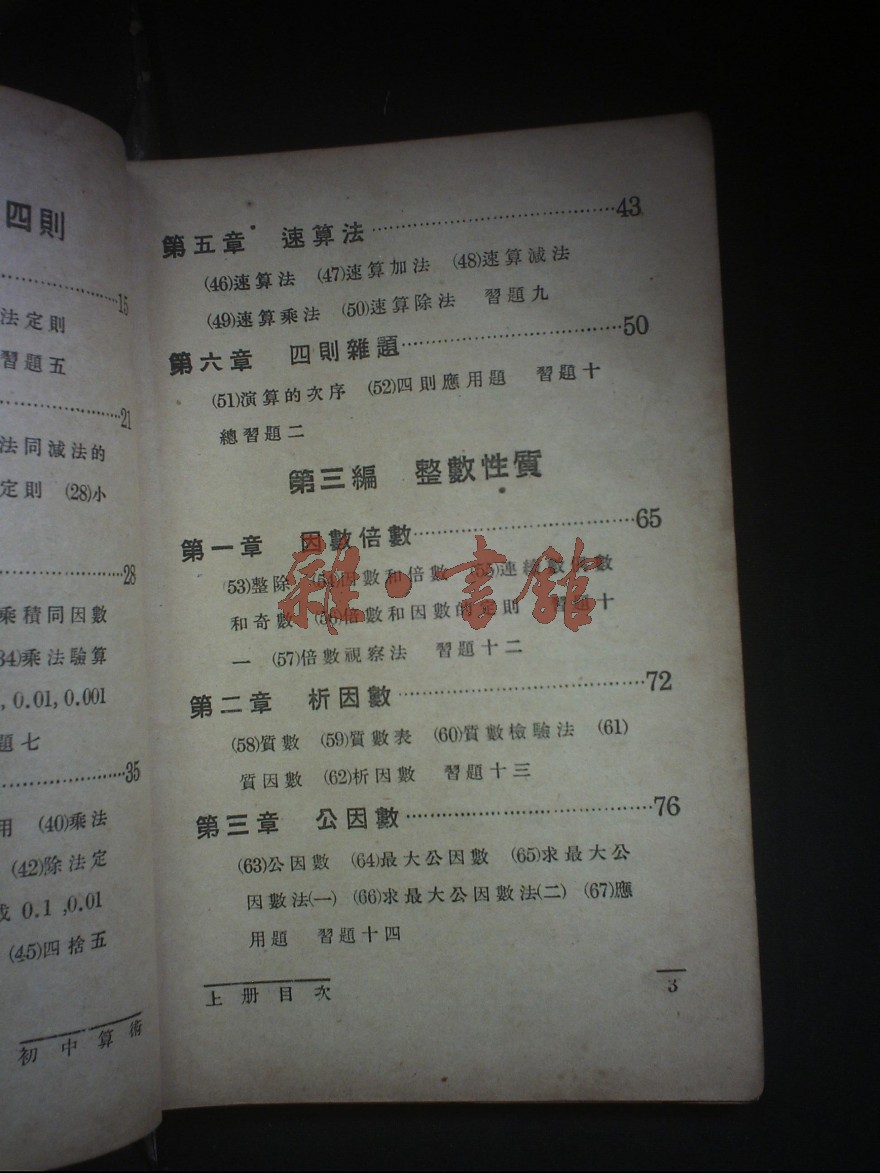 四則
15
法定則
習題五
21
法同減法的
定則 (28)小
28
乘積同因數
34)乘法驗算
, 0.01, 0.001
題七
35
用 (40)乘法
(42)除法定
成 0.1 ,0.01
(45)四捨五
初中算術
第五章 速算法 43
(46)速算法 (47)速算加法 (48)速算減法
(49)速算乘法 (50)速算除法 習題九
第六章 四則雜題 50
(51)演算的次序 (52)四則應用題 習題十
總習題二
第三編 整數性質
第一章 因數倍數 65
(53)整除 (54)因數和倍數 (55)連續數偶數
和奇數 (56)倍數和因數的定則 習題十
一 (57)倍數視察法 習題十二
第二章 析因數 72
(58)質數 (59)質數表 (60)質數檢驗法 (61)
質因數 (62)析因數 習題十三
第三章 公因數 76
(63)公因數 (64)最大公因數 (65)求最大公
因數法(一) (66)求最大公因數法(二) (67)應
用題 習題十四
上册目次 3
雜·書館